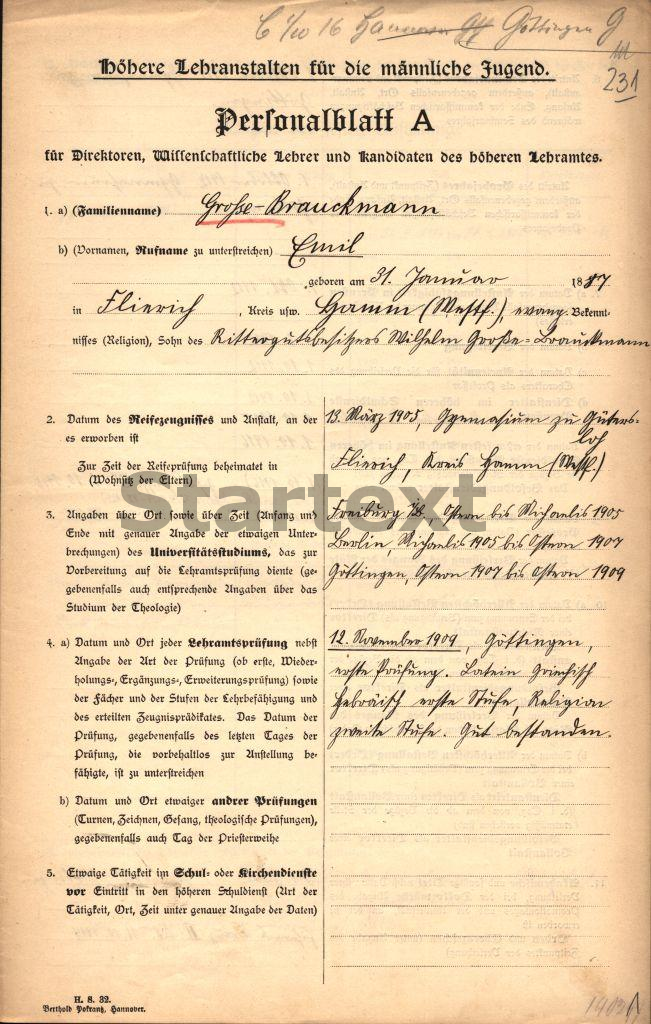 C 1/10 16 Hannover Göttingen G
231
Höhere Lehranstalten für die männliche Jugend.
Personalblatt A
für Direktoren, Wissenschaftliche Lehrer und Kandidaten des höheren Lehramtes.
1. a) (Familienname) Große-Brauckmann
b) (Vornamen, Rufname zu unterstreichen) Emil
geboren am 31. Januar 1887
in Flierich, Kreis usw. Hamm (Westf.), evang. Bekennt-
nisses (Religion), Sohn des Rittergutsbesitzers Wilhelm Große-Brauckmann
2. Datum des Reifezeugnisses und Anstalt, an der 13. März 1905, Gymnasium zu Güters-
es erworben ist loh
Zur Zeit der Reifeprüfung beheimatet in Flierich, Kreis Hamm (Westf.)
(Wohnsitz der Eltern)
Startext
3. Angaben über Ort sowie über Zeit (Anfang und Freiburg i/B, Ostern bis Michaelis 1905
Ende mit genauer Angabe der etwaigen Unter- Berlin, Michaelis 1905 bis Ostern 1907
brechungen) des Universitätsstudiums, das zur
Vorbereitung auf die Lehramtsprüfung diente (ge- Göttingen, Ostern 1907 bis Ostern 1909
gebenenfalls auch entsprechende Angaben über das
Studium der Theologie)
4. a) Datum und Ort jeder Lehramtsprüfung nebst 12. November 1909, Göttingen,
Angabe der Art der Prüfung (ob erste, Wieder- erste Prüfung. Latein Griechisch
holungs-, Ergänzungs-, Erweiterungsprüfung) sowie
der Fächer und der Stufen der Lehrbefähigung und Hebräisch erste Stufe, Religion
des erteilten Zeugnisprädikates. Das Datum der zweite Stufe. Gut bestanden.
Prüfung, gegebenenfalls des letzten Tages der
Prüfung, die vorbehaltlos zur Anstellung be-
fähigte, ist zu unterstreichen
b) Datum und Ort etwaiger andrer Prüfungen
(Turnen, Zeichnen, Gesang, theologische Prüfungen),
gegebenenfalls auch Tag der Priesterweihe
5. Etwaige Tätigkeit im Schul- oder Kirchendienste
vor Eintritt in den höheren Schuldienst (Art der
Tätigkeit, Ort, Zeit unter genauer Angabe der Daten)
H. S. 32.
Berthold Pokrantz, Hannover.